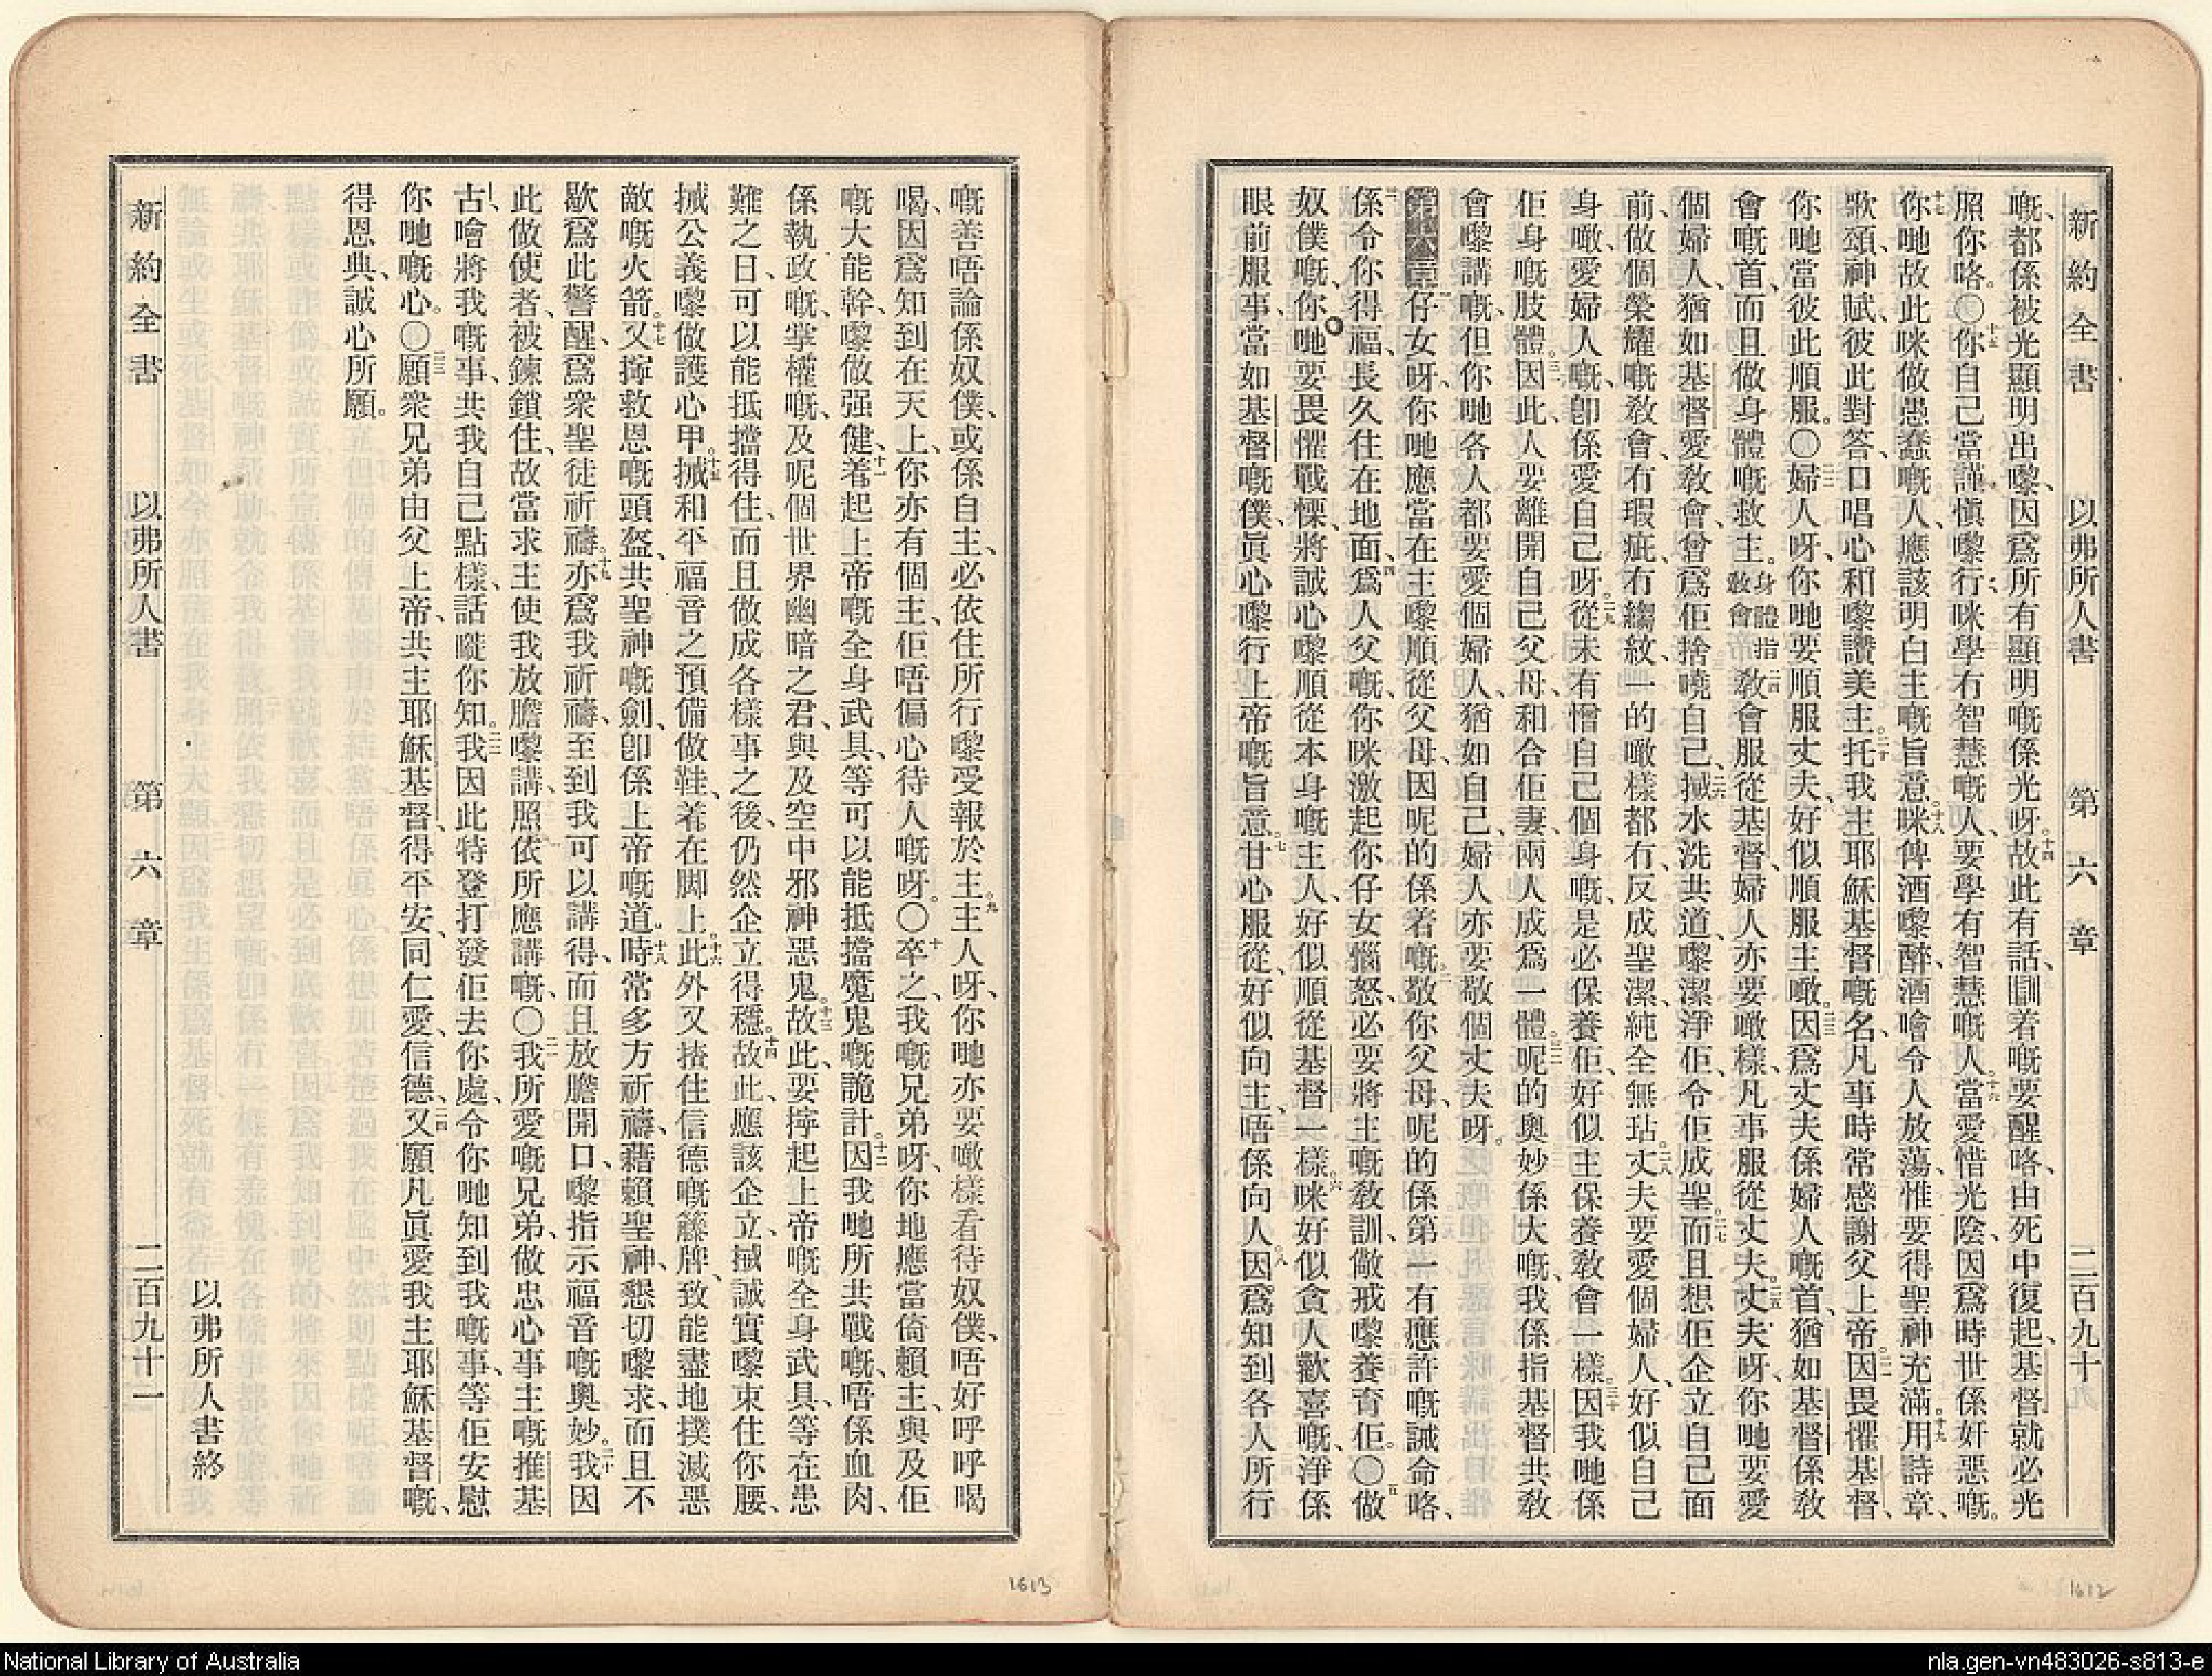 新約全書 以弗所人書 第六章 二百九十
嘅、都係被光顯明出嚟、因爲所有顯明嘅係光呀。十四故此有話、瞓着嘅要醒咯、由死中復起、基督就必光
照你咯。〇十五你自己當謹愼嚟行、咪學冇智慧嘅人、要學有智慧嘅人。十六當愛惜光陰、因爲時世係奸惡嘅。
十七你哋故此咪做愚蠢嘅人、應該明白主嘅旨意。十八咪俾酒嚟醉、酒噲令人放蕩、惟要得聖神充滿。十九用詩章、
歌頌、神賦、彼此對答、口唱心和嚟讚美主。二十托我主耶穌基督嘅名、凡事時常感謝父上帝。二一因畏懼基督、
你哋當彼此順服。〇二二婦人呀、你哋要順服丈夫、好似順服主噉。二三因爲丈夫係婦人嘅首、猶如基督係敎
會嘅首、而且做身體嘅救主。身體指敎會二四敎會服從基督、婦人亦要噉樣、凡事服從丈夫。二五丈夫呀、你哋要愛
個婦人、猶如基督愛敎會、曾爲佢捨嘵自己、二六搣水洗共道、嚟潔淨佢、令佢成聖。二七而且想佢企立自己面
前、做個榮耀嘅敎會、冇瑕疵、冇縐紋、一的噉樣都冇、反成聖潔、純全無玷。二八丈夫要愛個婦人、好似自己
身噉、愛婦人嘅、卽係愛自己呀。二九從未有憎自己個身嘅、是必保養佢、好似主保養敎會一樣。三十因我哋係
佢身嘅肢體。三一因此、人要離開自己父母、和合佢妻、兩人成爲一體。三二呢的奧妙係大嘅、我係指基督共敎
會嚟講嘅、但你哋各人都要愛個婦人、猶如自己、婦人亦要敬個丈夫呀。
第六章一仔女呀、你哋應當在主嚟順從父母、因呢的係着嘅。二敬你父母、呢的係第一有應許嘅誡命咯、
三係令你得福、長久住在地面。四爲人父嘅、你咪激起你仔女惱怒、必要將主嘅敎訓儆戒嚟養育佢。〇五做
奴僕嘅、你哋要畏懼戰慄、將誠心嚟順從本身嘅主人、好似順從基督一樣。六咪好似貪人歡喜嘅、淨係
眼前服事、當如基督嘅僕、眞心嚟行上帝嘅旨意。七甘心服從、好似向主、唔係向人。八因爲知到各人所行
嘅善、唔論係奴僕、或係自主、必依住所行嚟受報於主。九主人呀、你哋亦要噉樣看待奴僕、唔好呼呼喝
喝、因爲知到在天上、你亦有個主、佢唔偏心待人嘅呀。〇十卒之、我嘅兄弟呀、你地應當倚賴主、與及佢
嘅大能幹、嚟做强健、十一着起上帝嘅全身武具、等可以能抵擋魔鬼嘅詭計。十二因我哋所共戰嘅、唔係血肉、
係執政嘅、掌權嘅、及呢個世界幽暗之君、與及空中邪神惡鬼。十三故此、要擰起上帝嘅全身武具、等在患
難之日、可以能抵擋得住、而且做成各樣事之後、仍然企立得穩。十四故此、應該企立、搣誠實嚟束住你腰、
搣公義嚟做護心甲。十五搣和平福音之預備做鞋、着在脚上。十六此外又揸住信德嘅籐牌、致能盡地撲滅惡
敵嘅火箭。十七又擰救恩嘅頭盔、共聖神嘅劍、卽係上帝嘅道。十八時常多方祈禱、藉賴聖神、懇切嚟求、而且不
歇爲此警醒、爲衆聖徒祈禱。十九亦爲我祈禱、至到我可以講得、而且放膽開口、嚟指示福音嘅奧妙。二十我因
此做使者、被鍊鎖住、故當求主使我放膽嚟講、照依所應講嘅、〇二一我所愛嘅兄弟、做忠心事主嘅推基
古、噲將我嘅事、共我自己點樣、話嘥你知。二二我因此特登打發佢去你處、令你哋知到我嘅事、等佢安慰
你哋嘅心。〇二三願衆兄弟由父上帝、共主耶穌基督、得平安、同仁愛、信德、二四又願凡眞愛我主耶穌基督嘅、
得恩典、誠心所願。
以弗所人書終
新約全書 以弗所人書 第六章 二百九十一
1613
1612
National Library of Australia
nla.gen-vn483026-s813-e